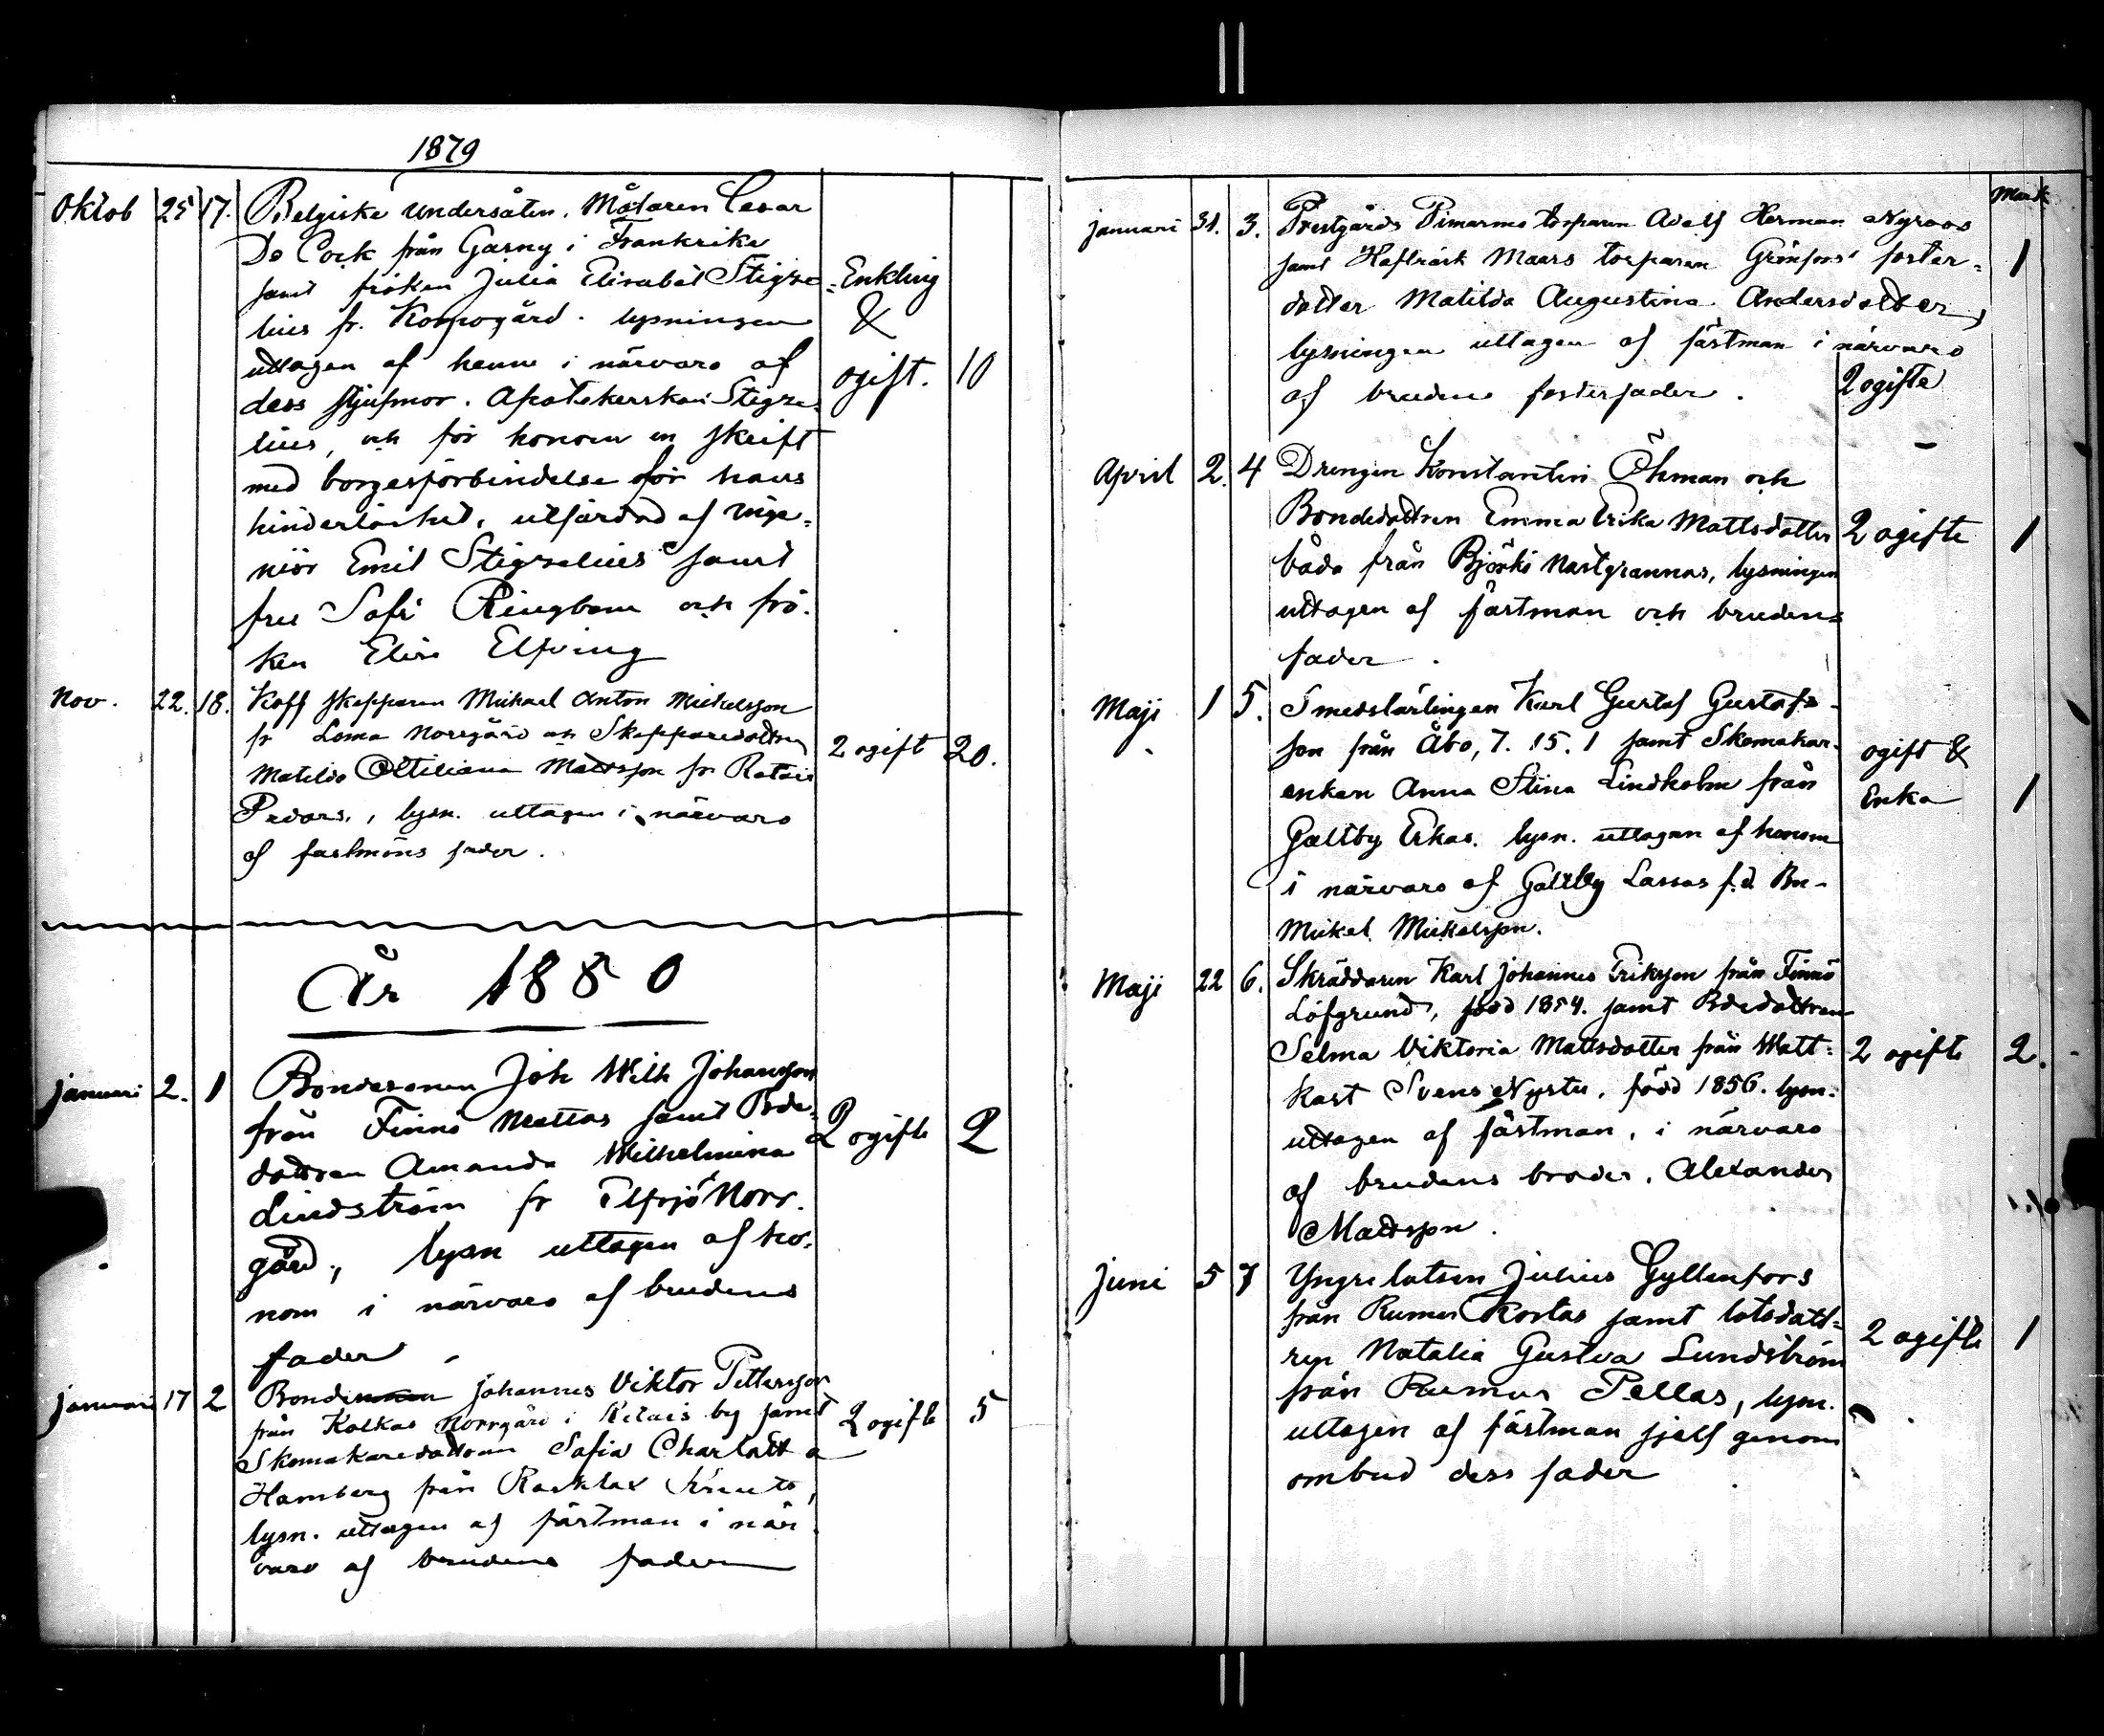 1879
Oktob 25 17. Belgiske undersåten, Målaren Cesar
De Cock från Garny i Frankrike
samt fröken Julia Elisabet Stigze- Enkling
lius fr. Korpogård. lysningen &
uttagen af henne i närvaro af ogift. 10
dess stjufmor. Apotekerskan Stigze-
lius, och för honom en skrift
med borgesförbindelse för hans
hinderlöshet, utfärdad af inge-
niör Emil Stigzelius samt
fru Sofi Ringbom och frö-
ken Elise Elfving
Nov. 22. 18. Koff skepparen Mickael Anton Mickelsson
fr Loma Norrgård och Skepparedottren 2 ogift 20.
Matilda Ottiliana Mattsson fr Retais
Pedars, lysn. uttagen i närvaro
af fästmöns fader.
År 1880
Januari 2. 1 Bondesonen Joh Wilh Johansson
från Finnö Mattas samt Bde- 2 ogifte 2
dottren Amanda Wilhelmina
Lindström fr Elfsjö Norr-
gård, lysn uttagen af ho-
nom i närvaro af brudens
fader
Januari 17 2 Bonden Johannes Viktor Pettersson
från Kalkas Norrgård i Retais by samt 2 ogifte 5
Skomakaredottren Sofia Charlotta
Hamberg från Rasklax Knuts,
lysn. uttagen af fästman i när-
varo af brudens fader
Mark
Januari 31. 3. Prestgårds torparen Adolf Herman Nyroos
samt Hafträsk Maars torparen Grönfors' foster- 1
dotter Matilda Augustina Andersdotter,
lysningen uttagen af fästman i närvaro
af brudens fosterfader. 2 ogifte
April 2. 4 Drengen Konstantin Öhman och
Bondedottren Emma Erika Mattsdotter 2 ogifte 1
båda från Björkö Nastgrannas, lysningen
uttagen af fästman och brudens
fader.
Maji 1 5. Smedslärlingen Karl Gustaf Gustafs-
son från Åbo, 7. 15. 1 samt Skomakar- ogift &
enkan Anna Stina Lindholm från Enka 1
Galtby Erkas. lysn. uttagen af honom
i närvaro af Galtby Lassas f.d. Bn-
Mickel Mickelsson.
Maji 22 6. Skräddaren Karl Johannes Eriksson från Finnö
Löfgrund, född 1854. samt Bdedottren
Selma Viktoria Mattsdotter från Watt- 2 ogifte 2.
kast Svens Nystu, född 1856. lysn.
uttagen af fästman, i närvaro
af brudens broder, Alexander
Mattsson.
Juni 5 7 Yngre lotsen Julius Gyllenfors
från Rumar Kortas samt lotsdott- 2 ogifte 1
ren Natalia Gustva Lundström
från Rumar Pellas, lysn.
uttagen af fästman sjelf genom
ombud dess fader